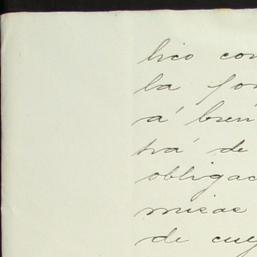 lico con
la for
á bien
trá de
obligac
misas
de cuy